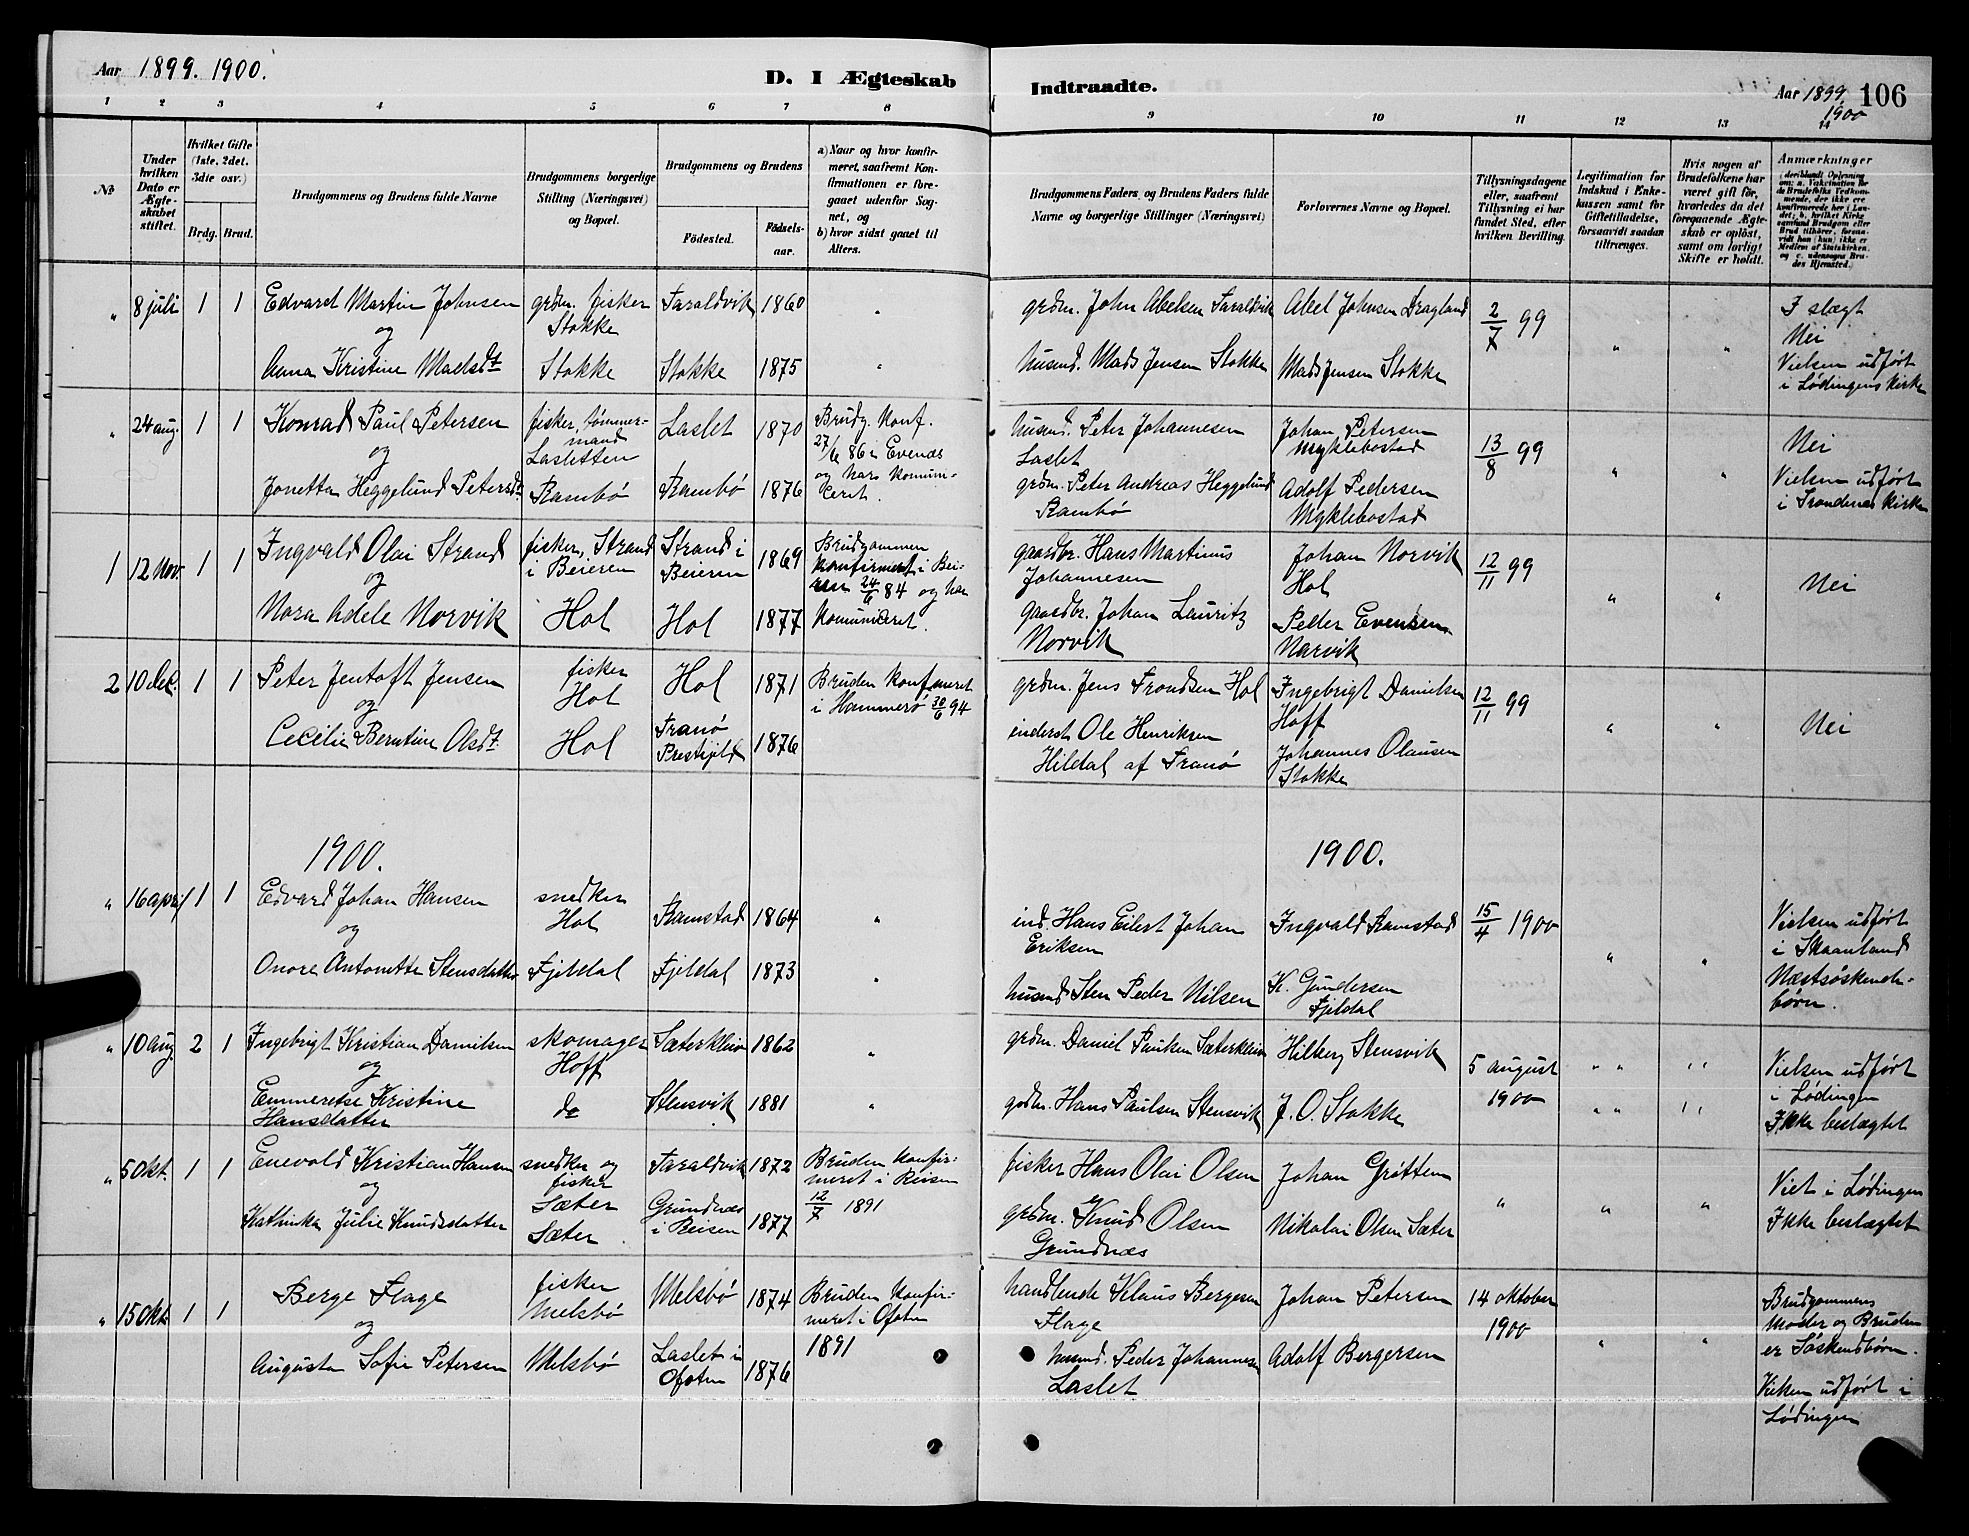 Aar 1899. 1900.
D. I Ægteskab
Indtraadte.
Aar 1899. 106
1900
1 2 3 4 5 6 7 8 9 10 11 12 13 14
No
Under hvilken Dato er Ægteskabet stiftet.
Hvilket Gifte (1ste, 2det, 3die osv.)
Brdg. Brud.
Brudgommens og Brudens fulde Navne
Brudgommens borgerlige Stilling (Næringsvei) og Bopæl.
Brudgommens og Brudens
Fødested.
Fødselsaar.
a) Naar og hvor konfirmeret, saafremt Konfirmationen er foregaaet udenfor Sognet, og
b) hvor sidst gaaet til Alters.
Brudgommens Faders og Brudens Faders fulde Navne og borgerlige Stillinger (Næringsvei)
Forlovernes Navne og Bopæl.
Tillysningsdagene eller, saafremt Tillysning ei har fundet Sted, efter hvilken Bevilling.
Legitimation for Indskud i Enkekassen samt for Giftetilladelse, forsaavidt saadan tiltrænges.
Hvis nogen af Brudefolkene har været gift før, hvorledes da det foregaaende Ægteskab er opløst, samt om lovligt Skifte er holdt.
Anmærkninger (deriblandt Oplysning om: a. Vakcination for de Brudefolks Vedkommende, der ikke ere konfirmerede her i Landet; b. hvilket Kirkesamfund Brudgom eller Brud tilhører, forsaavidt han (hun) ikke er Medlem af Statskirken, og c. udensogns Brudes Hjemsted.)
" 8 juli 1 1 Edvard Martin Johnsen grdm. fisker Taraldvik 1860 "
og Stokke
Anna Kristine Madsdt Stokke Stokke 1875 "
grdm. John Abelsen Taraldvik Abel Johnsen Dragland 2/7 99 I slægt
Nei
husmd. Mads Jensen Stokke Mads Jensen Stokke " " Vielsen udført
i Lødingens kirke
" 24 aug. 1 1 Konrad Paul Petersen fisker, tømmermand Laslet 1870 Brudg. Konf.
og Lasletten 27/6 86 i Evenæs
Jonetta Heggelund Petersdt Rambø Rambø 1876 og hars komuniceret.
husmd. Peter Johannesen Johan Petersen
Laslet Myklebostad 13/8 99 Nei
grdm. Peter Andreas Heggelund Adolf Pedersen " " Vielsen udført
Rambø Myklebostad i Trondenes kirke
1 12 Nov. 1 1 Ingvald Olai Strand fisker, Strand Strand i 1869 Brudgommen
og i Beieren Beieren konfirmert i Beieren 24/6 84 og har
Nora Adele Norvik Hol Hol 1877 komuniceret.
gaardbr. Hans Martinus Johan Norvik 12/11 99
Johannesen Hol Nei
gaardbr. Johan Lauritz Peder Evensen " "
Norvik Narvik
2 10 dec. 1 1 Peter Jentoft Jensen fisker Hol 1871 Bruden konfirmeret
og Hol i Hammerø 30/6 94
Cecilie Berntine Olsdt. Hol Tranø Prestegjeld 1876
grdm. Jens Trondsen Hol Ingebrigt Danielsen 12/11 99
Hoff
inderst Ole Henriksen Johannes Olausen " " Nei
Hildal af Tranø Stokke
1900. 1900.
" 16 april 1 1 Edvard Johan Hansen snedker Ramstad 1864 "
og Hol
Onore Antonette Stensdatter Fjeldal Fjeldal 1873 "
ind. Hans Eilert Johan Ingvald Ramstad 15/4 1900 Vielsen udført
Eriksen i Skaanland
husmd Sten Peder Nilsen K. Gundersen " " Næstsøskendebørn.
Fjeldal
" 10 aug. 2 1 Ingebrigt Kristian Danielsen skomager Sæterkleiv 1862 "
og Hoff
Emmeretse Kristine do Stensvik 1881 "
Hansdatter
grdm. Daniel Paulsen Sæterkleiv Hilberg Stensvik 5 august " " " Vielsen udført
i Lødingen
grdm. Hans Paulsen Stensvik J. O. Stokke 1900 " " " Ikke beslægtet
" 5 Okt. 1 1 Enevold Kristian Hansen snedker og Taraldvik 1872 Bruden konfirmeret i Reisen
og fisker Sæter 12/7 1891
Kathinka Julie Knudsdatter Sæter Grundnæs i Reisen 1877
fisker Hans Olai Olsen Johan Grøtten " " " Viet i Lødingen
grdm. Knud Olsen Nikolai Olsen Sæter Ikke beslægtet
Grundnæs
" 15 Okt. 1 1 Berge Flage fisker Melsbø 1874 Bruden konfirmeret i Ofoten
og Melsbø 1891
Augusta Sofie Petersen Melsbø Laslet i Ofoten 1876
handlende Klaus Bergesen Johan Petersen 14 oktober Brudgommens
Flage 1900 Moder og Bruden
husmd. Peder Johannesen Adolf Bergersen " " er Søskendbørn.
Laslet Vielsen udført i
Lødingen